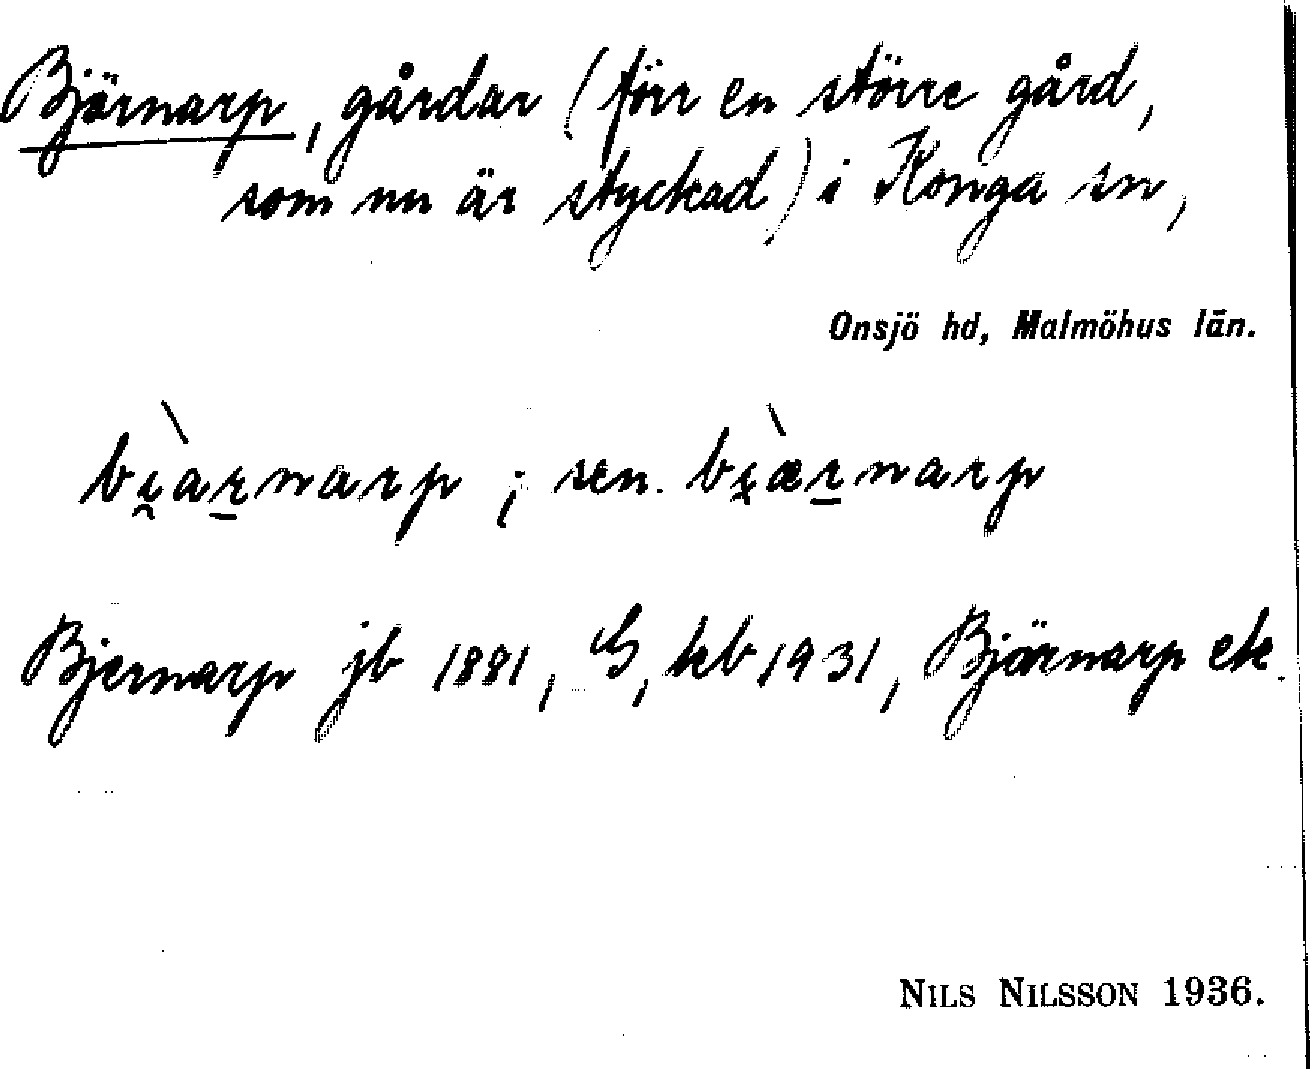 Björnarp, gårdar (förr en större gård,
som nu är styckad) i Konga sn,
Onsjö hd, Malmöhus län.
bi̯àr̲narp ; sen. bi̯æ̀r̲narp
Bjernarp jb 1881, G, kb 1931, Björnarp ek.
NILS NILSSON 1936.